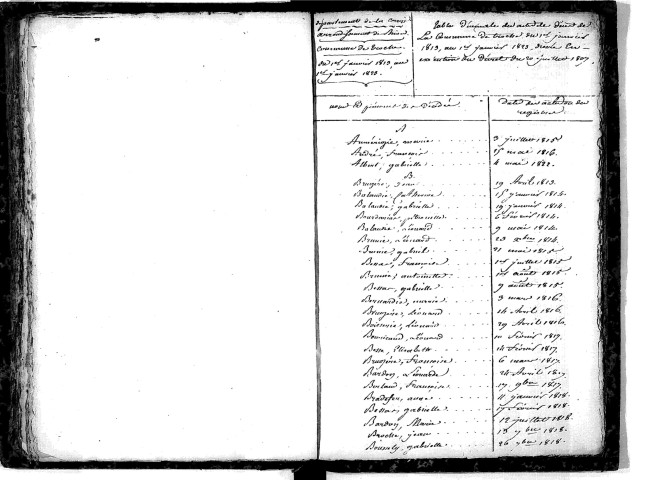 département de la Corrèze
arrondissement de Brive
Commune de Troche
du 1er janvier 1813 au
1er janvier 1823.
Table Décennale des actes de décès de
La Commune de troche du 1er janvier
1813, au 1er janvier 1823, dressée en
exécution du Décret du 20 juillet 1807.
noms et prénoms des Décédés.
Dates des actes ou des
registres.
A
marie 3 juillet 1815
André, Françoise 15 mai 1816.
Albert, gabrielle 4 mai 1822.
B.
Brugère, Jean 19 Avril 1813.
Balandie, Catherine 15 janvier 1814.
Balandie, gabrielle 19 janvier 1814.
6 Février 1814.
Balandie, Léonard 9 mai 1814.
Brunie, Léonard 23 Xbre 1814.
Brunie, gabriel 21 mai 1815.
Bessas, Françoise 1er juillet 1815
Brunie, antoinette août 1815.
Bessas, gabrielle 9 août 1815.
marie 3 mars 1816.
Brugère, Léonard 14 Avril 1816.
Léonard 29 Avril 1816.
Léonard Février 1817.
Besse, Elisabeth Février 1817.
Brugère, Françoise 6 mars 1817.
Bardon, Léonarde 24 Avril 1817
Françoise 17 9bre 1817.
11 janvier 1818.
Bessas, gabrielle Février 1818.
Bardon, Marie 12 juillet 1818.
Broche, jean 18 1818.
gabrielle 26 1818.